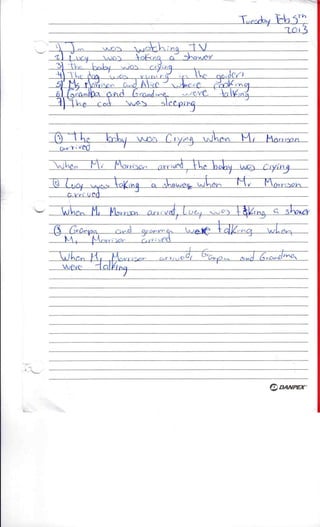 Tuesday Feb 5th
2013
1) Jim was watching TV
2) Lucy was taking a shower
3) The baby was crying
4) The dog was runing in the garden
5) Ms Morrison and Alice where cooking
6) Grandpa and Grandma were talking
7) The cad was sleeping
The baby was Crying when Mr Morrison
arrived
When Mr Morrison arrived, the baby was crying
② Lucy was taking a shower when Mr Morrison
arrived
When Mr Morrison arrived, Lucy was taking a shower
③ Grampa and granma were talking when
Mr Morrison arrived
When Mr Morrison arrived, Grampa and Grandma
were talking
DANPEX